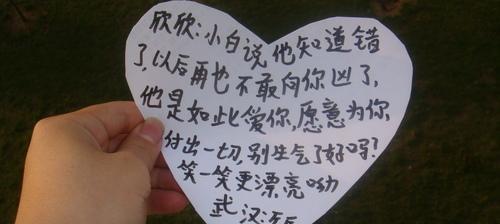 欣欣:小白说他知道错
了,以后再也不敢向你凶了,
他是如此爱你,愿意为你
付出一切,别生气了好吗?
笑一笑更漂亮呦
武汉